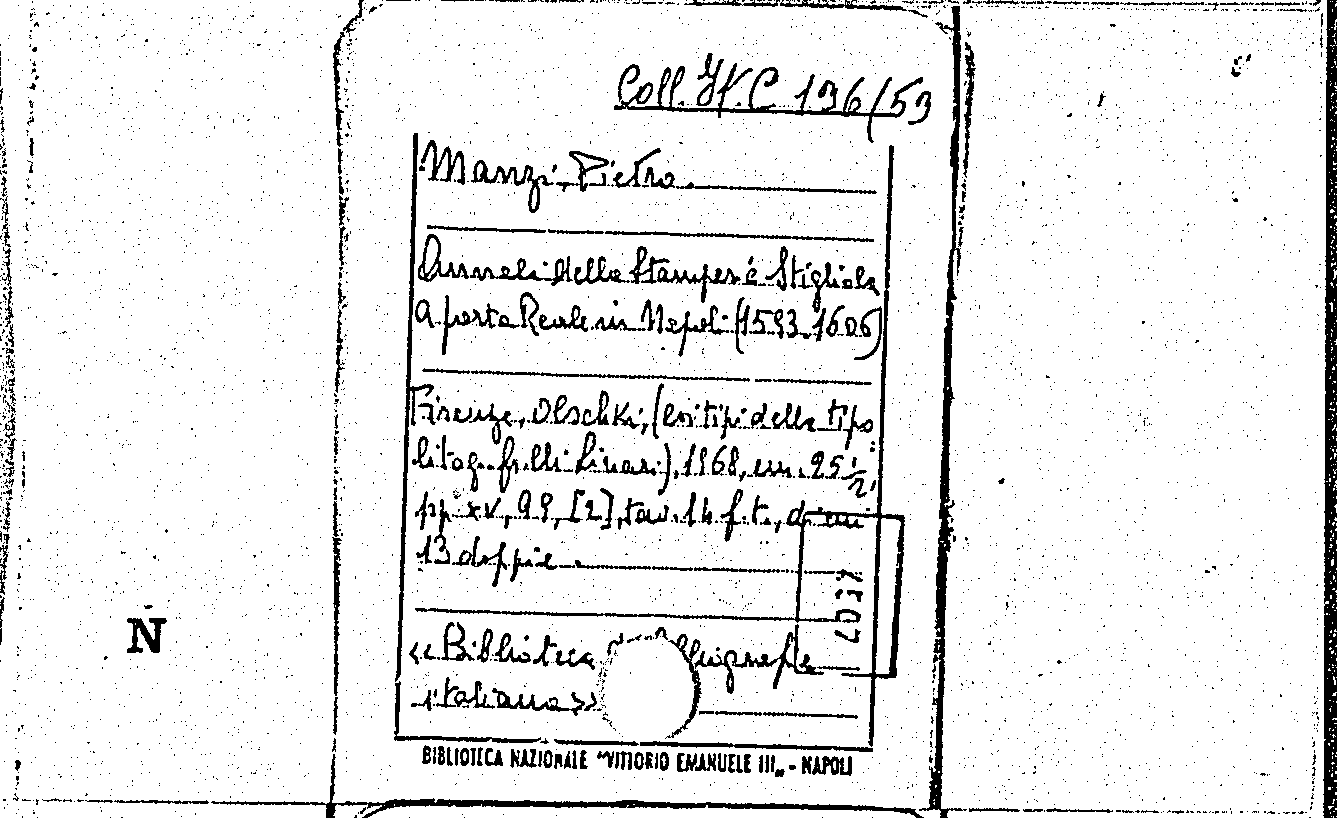 Coll. H.C 196/53
Manzi, Pietro.
Annali della Stamperia Stigliola
a porta Reale in Napoli (1593-1606)
Firenze, Olschki, (coi tipi della tipo
litogr. f.lli Linari), 1968, cm. 25 1/2,
pp. XV, 99, [2], tav. 14 f.t., di cui
13 doppie.
«Biblioteca di bibliografia
italiana»
N
BIBLIOTECA NAZIONALE "VITTORIO EMANUELE III„ - NAPOLI